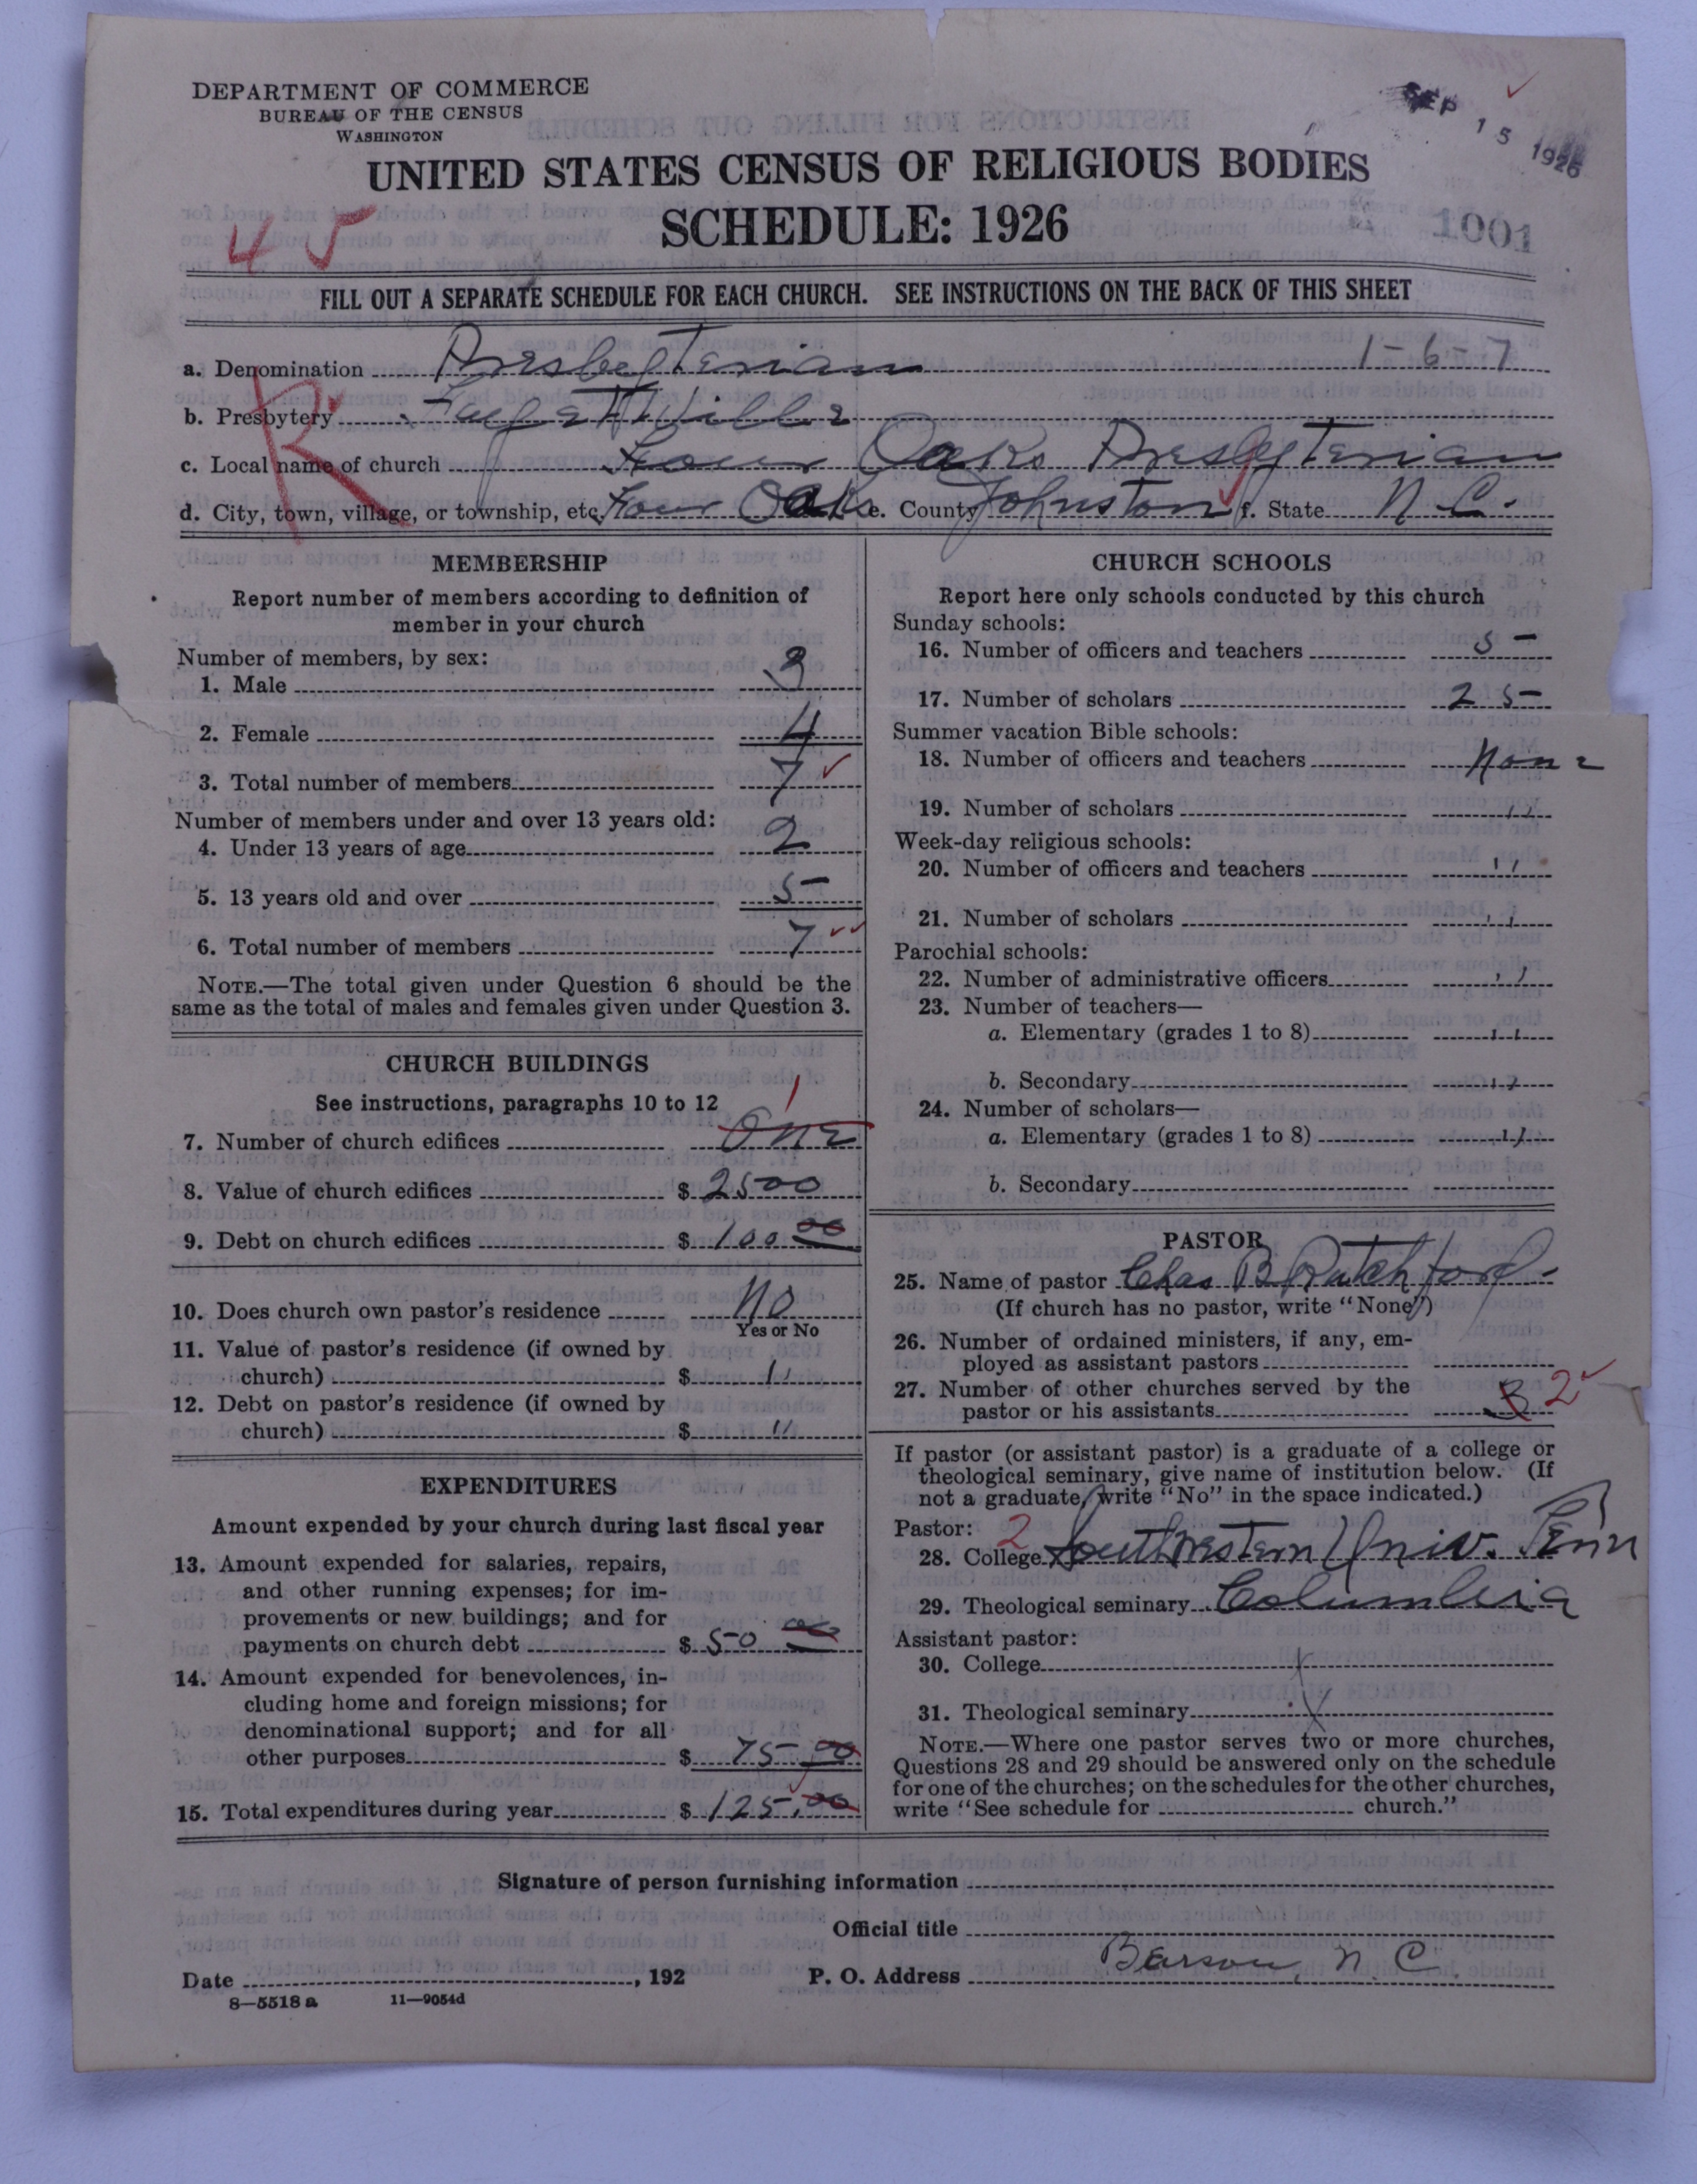 DEPARTMENT OF COMMERCE
BUREAU OF THE CENSUS
WASHINGTON
SEP 15 1926
UNITED STATES CENSUS OF RELIGIOUS BODIES
SCHEDULE: 1926
1001
45
FILL OUT A SEPARATE SCHEDULE FOR EACH CHURCH. SEE INSTRUCTIONS ON THE BACK OF THIS SHEET
a. Denomination Presbyterian 1-6-7
b. Presbytery
R
c. Local name of church Four Oaks Presbyterian
d. City, town, village, or township, etc. Four Oaks e. County Johnston f. State N.C.
MEMBERSHIP
Report number of members according to definition of
member in your church
Number of members, by sex:
1. Male 3
2. Female 4
3. Total number of members 7
Number of members under and over 13 years old:
4. Under 13 years of age 2
5. 13 years old and over 5
6. Total number of members 7
NOTE.—The total given under Question 6 should be the
same as the total of males and females given under Question 3.
CHURCH BUILDINGS
See instructions, paragraphs 10 to 12
1
7. Number of church edifices One
8. Value of church edifices $ 2500
9. Debt on church edifices $ 100 00
10. Does church own pastor's residence No
Yes or No
11. Value of pastor's residence (if owned by
church) $ "
12. Debt on pastor's residence (if owned by
church) $ "
EXPENDITURES
Amount expended by your church during last fiscal year
13. Amount expended for salaries, repairs,
and other running expenses; for im-
provements or new buildings; and for
payments on church debt $ 50 00
14. Amount expended for benevolences, in-
cluding home and foreign missions; for
denominational support; and for all
other purposes $ 75.00
15. Total expenditures during year $ 125.00
CHURCH SCHOOLS
Report here only schools conducted by this church
Sunday schools:
16. Number of officers and teachers 5
17. Number of scholars 25
Summer vacation Bible schools:
18. Number of officers and teachers None
19. Number of scholars "
Week-day religious schools:
20. Number of officers and teachers "
21. Number of scholars "
Parochial schools:
22. Number of administrative officers "
23. Number of teachers—
a. Elementary (grades 1 to 8) "
b. Secondary "
24. Number of scholars—
a. Elementary (grades 1 to 8) "
b. Secondary
PASTOR
25. Name of pastor Chas B Ratchford
(If church has no pastor, write "None")
26. Number of ordained ministers, if any, em-
ployed as assistant pastors
27. Number of other churches served by the
pastor or his assistants 3 2
If pastor (or assistant pastor) is a graduate of a college or
theological seminary, give name of institution below. (If
not a graduate, write "No" in the space indicated.)
Pastor: 2
28. College Southwestern Univ.
29. Theological seminary Columbia
Assistant pastor:
30. College
31. Theological seminary X
NOTE.—Where one pastor serves two or more churches,
Questions 28 and 29 should be answered only on the schedule
for one of the churches; on the schedules for the other churches,
write "See schedule for church."
Signature of person furnishing information
Official title
Date , 192 P. O. Address N. C.
8—5518 a 11—9054d